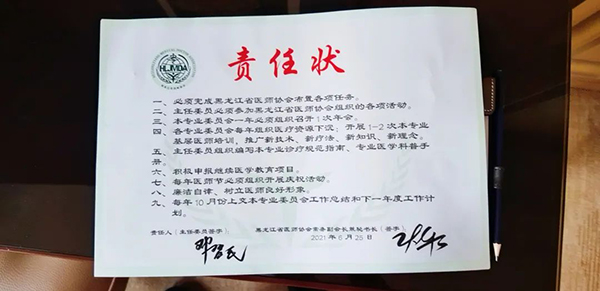 HLJMDA
责任状
一、必须完成黑龙江省医师协会布置各项任务。
二、主任委员必须参加黑龙江省医师协会组织的各项活动。
三、本专业委员会一年必须组织召开1次年会。
四、各专业委员会每年组织医疗资源下沉；开展1-2次本专业
基层医师培训，推广新技术、新疗法、新知识、新理念。
五、主任委员组织编写本专业诊疗规范指南、专业医学科普手
册。
六、积极申报继续医学教育项目。
七、每年医师节必须组织开展庆祝活动。
八、廉洁自律、树立医师良好形象。
九、每年10月份上交本专业委员会工作总结和下一年度工作计
划。
责任人（主任委员签字） 黑龙江省医师协会常务副会长兼秘书长（签字）
2021年6月26日